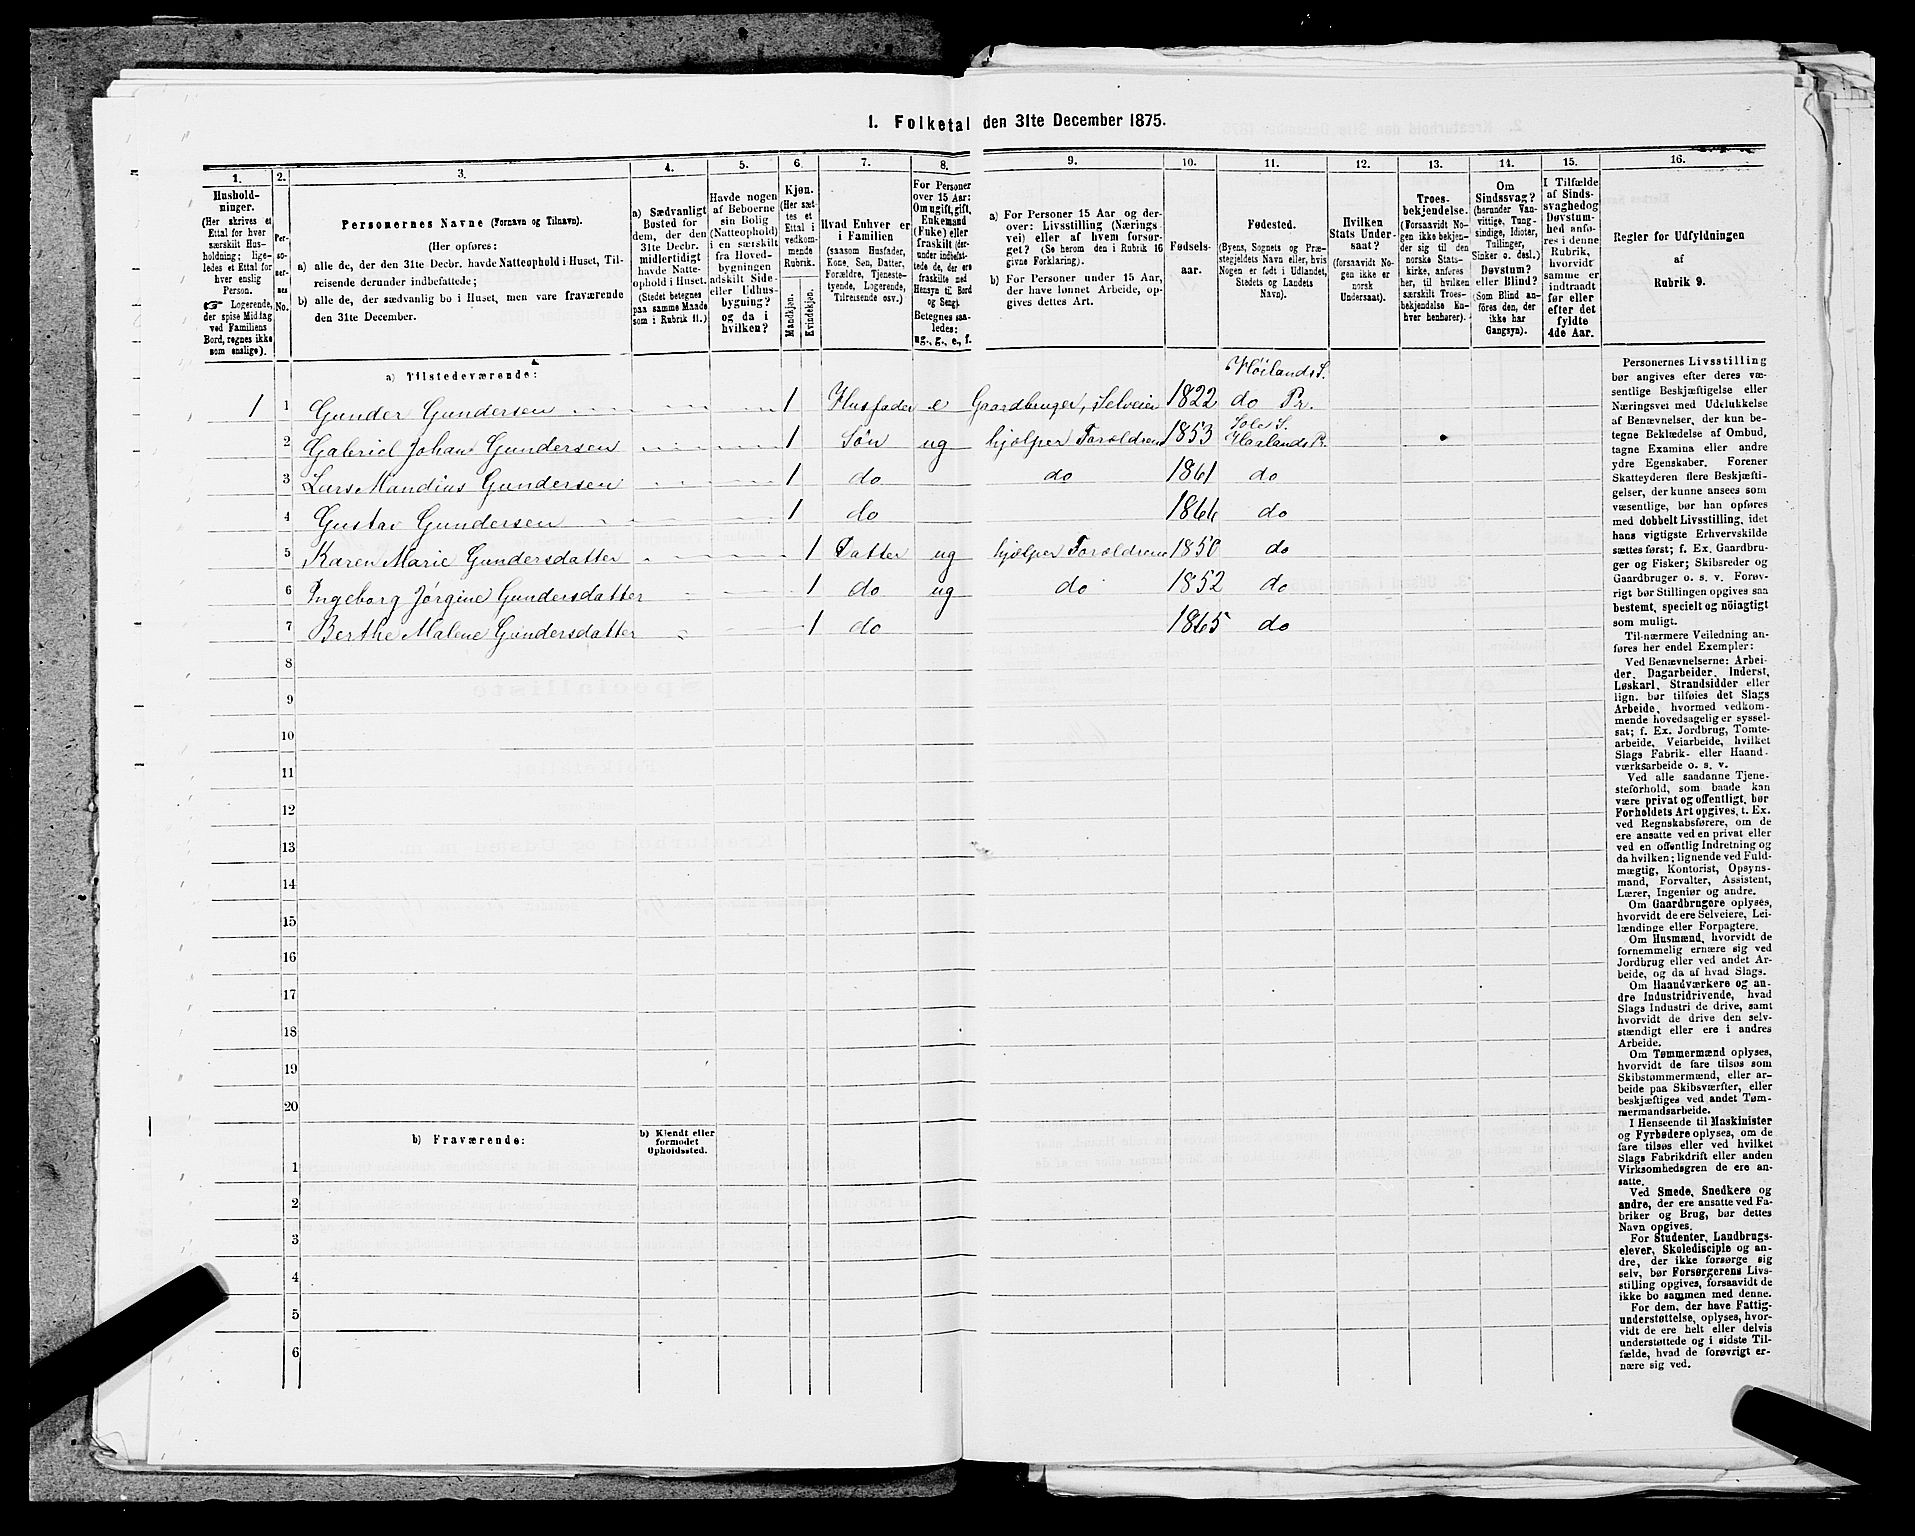 1. Folketal den 31te December 1875.
1. 2. 3. 4. 5. 6. 7. 8. 9. 10. 11. 12. 13. 14. 15. 16.
Hushold-
ninger.
(Her skrives et
Ettal for hver
særskilt Hus-
holdning; lige-
ledes et Ettal for
hver enslig
Person.
☞ Logerende,
der spise Middag
ved Familiens
Bord, regnes ikke
som enslige).
Per-
soner-
nes
No.
Personernes Navne (Fornavn og Tilnavn).
(Her opføres:
a) alle de, der den 31te Decbr. havde Natteophold i Huset, Til-
reisende derunder indbefattede;
b) alle de, der sædvanlig bo i Huset, men vare fraværende
den 31te December.
a) Sædvanligt
Bosted for
dem, der den
31te Decbr.
midlertidigt
havde Natte-
ophold i Huset.
(Stedet betegnes
paa samme Maade
som i Rubrik 11.)
Havde nogen
af Beboerne
sin Bolig
(Natteophold)
i en særskilt
fra Hoved-
bygningen
adskilt Side-
eller Udhus-
bygning?
og da i
hvilken?
Kjøn.
(Her sæt-
tes et
Ettal i
vedkom-
mende
Rubrik.
Mandkjøn.
Kvindekjøn.
Hvad Enhver er
i Familien
(saasom Husfader,
Kone, Søn, Datter,
Forældre, Tjeneste-
tyende, Logerende,
Tilreisende osv.)
For Personer
over 15 Aar:
Om ugift, gift,
Enkemand
(Enke) eller
fraskilt (der-
under indbefat-
tede de, der ere
fraskilte med
Hensyn til Bord
og Seng).
Betegnes saa-
ledes:
ug., g., e., f.
a) For Personer 15 Aar og der-
over: Livsstilling (Nærings-
vei) eller af hvem forsør-
get? (Se herom den i Rubrik 16
givne Forklaring).
b) For Personer under 15 Aar,
der have lønnet Arbeide, op-
gives dettes Art.
Fødsels-
aar.
Fødested.
(Byens, Sognets og Præ-
stegjeldets Navn eller, hvis
Nogen er født i Udlandet,
Stedets og Landets
Navn).
Hvilken
Stats Under-
saat?
(forsaavidt No-
gen ikke er
norsk
Undersaat).
Troes-
bekjendelse.
(Forsaavidt No-
gen ikke bekjen-
der sig til den
norske Stats-
kirke, anføres
her, til hvilken
særskilt Troes-
bekjendelse En-
hver henhører).
Om
Sindssvag?
(herunder Van-
vittige, Tung-
sindige, Idioter,
Tullinger,
Sinker o. desl.)
Døvstum?
eller Blind?
(Som Blind an-
føres den, der
ikke har
Gangsyn).
I Tilfælde
af Sinds-
svaghed og
Døvstum-
hed anfø-
res i denne
Rubrik,
hvorvidt
samme er
indtraadt
før eller
efter det
fyldte
4de Aar.
Regler for Udfyldningen
af
Rubrik 9.
a) Tilstedeværende:
Høilands S.
1 1 Gunder Gundersen 1 Husfader e Gaardbruger, Selveier 1822 do Pr.
Sole S.
2 Gabriel Johan Gundersen 1 Søn ug hjælper Forældrene 1853 Haalands Pr.
3 Lars Mandius Gundersen 1 do do 1861 do
4 Gustav Gundersen 1 do 1866 do
5 Karen Marie Gundersdatter 1 Datter ug hjælper Forældrene 1850 do
6 Ingeborg Jørgine Gundersdatter 1 do ug do 1852 do
7 Berthe Malene Gundersdatter 1 do 1865 do
8
9
10
11
12
13
14
15
16
17
18
19
20
b) Fraværende:
b) Kjendt eller
formodet
Opholdssted.
1
2
3
4
5
6
Personernes Livsstilling
bør angives efter deres væ-
sentlige Beskjæftigelse eller
Næringsvei med Udelukkelse
af Benævnelser, der kun be-
tegne Beklædelse af Ombud,
tagne Examina eller andre
ydre Egenskaber. Forener
Skatteyderen flere Beskjæfti-
gelser, der kunne ansees som
væsentlige, bør han opføres
med dobbelt Livsstilling, idet
hans vigtigste Erhvervskilde
sættes først; f. Ex. Gaardbru-
ger og Fisker; Skibsreder og
Gaardbruger o. s. v. Forøv-
rigt bør Stillingen opgives saa
bestemt, specielt og nöiagtigt
som muligt.
Til nærmere Veiledning an-
føres her endel Exempler:
Ved Benævnelserne: Arbei-
der, Dagarbeider, Inderst,
Løskarl, Strandsidder eller
lign. bør tilføies det Slags
Arbeide, hvormed vedkom-
mende hovedsagelig er syssel-
sat; f. Ex. Jordbrug, Tomte-
arbeide, Veiarbeide, hvilket
Slags Fabrik- eller Haand-
værksarbeide o. s. v.
Ved alle saadanne Tjene-
steforhold, som baade kan
være privat og offentligt, bør
Forholdets Art opgives, t. Ex.
ved Regnskabsførere, om de
ere ansatte ved en privat eller
ved en offentlig Indretning og
da hvilken; lignende ved Fuld-
mægtig, Kontorist, Opsyns-
mand, Forvalter, Assistent,
Lærer, Ingeniør og andre.
Om Gaardbrugere oplyses,
hvorvidt de ere Selveiere, Lei-
lændinge eller Forpagtere.
Om Husmænd, hvorvidt de
fornemmelig ernære sig ved
Jordbrug eller ved andet Ar-
beide, og da af hvad Slags.
Om Haandværkere og an-
dre Industridrivende, hvad
Slags Industri de drive, samt
hvorvidt de drive den selv-
stændigt eller ere i andres
Arbeide.
Om Tømmermænd oplyses,
hvorvidt de fare tilsøs som
Skibstømmermænd, eller ar-
beide paa Skibsværfter, eller
beskjæftiges ved andet Tøm-
mermandsarbeide.
I Henseende til Maskinister
og Fyrbødere oplyses, om de
fare tilsøs eller ved hvilket
Slags Fabrikdrift eller anden
Virksomhedsgren de ere an-
satte.
Ved Smede, Snedkere og
andre, der ere ansatte ved Fa-
briker og Brug, bør dettes
Navn opgives.
For Studenter, Landbrugs-
elever, Skoledisciple og an-
dre, der ikke forsørge sig
selv, bør Forsørgerens Livs-
stilling opgives, forsaavidt de
ikke bo sammen med denne.
For dem, der have Fattig-
understøttelse, oplyses, hvor-
vidt de ere helt eller delvis
understøttede og i sidste Til-
fælde, hvad de forøvrigt er-
nære sig ved.